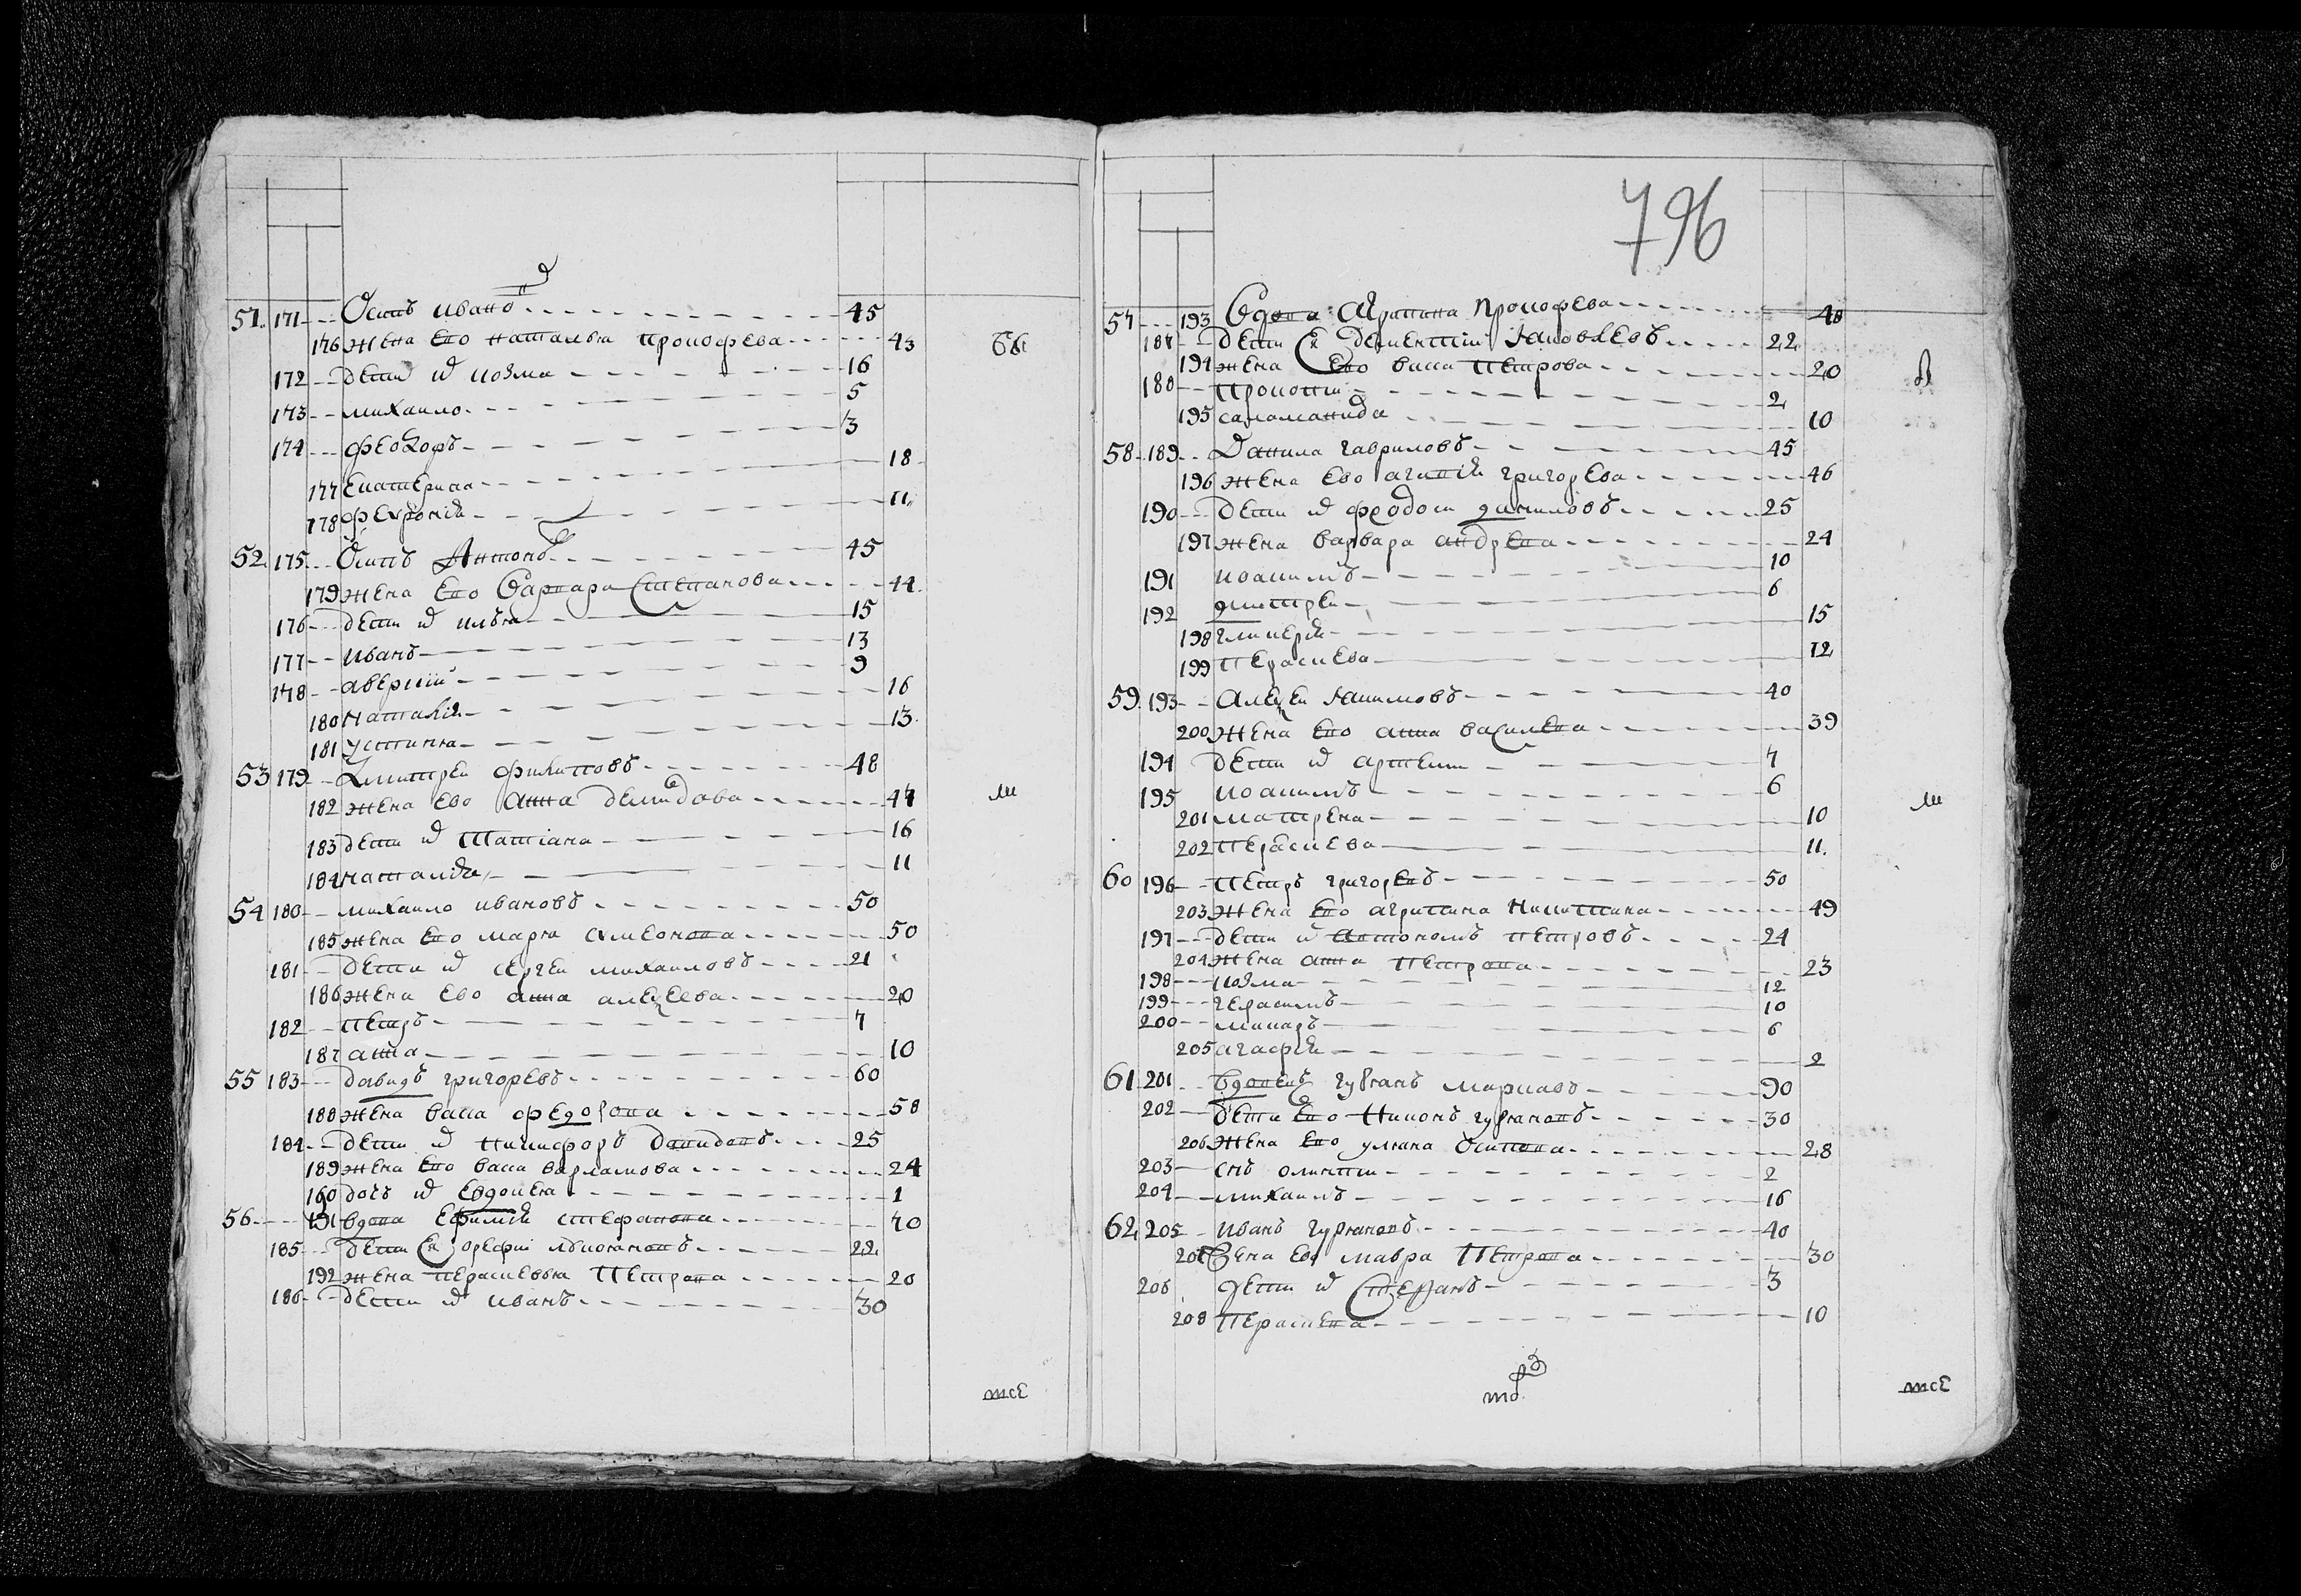 51. 171 Осипъ Иванов 45
176 жена ево наталья прокофева 43
бы
172 дети и козма 16
173 михаило 5
174 феодоръ 3
177 Екатерина 18
178 феуронїя 11
52. 175 Осипъ Антоновъ 45
179 жена ево варвара Степанова 44
176 дети и илья 15
177 иванъ 13
178 аверкии 9
180 наталїя 16
181 устинья 13
53 179 Дмитреи филиповъ 48
182 жена ево анна демидова 47
183 дети и татїана 16
184 наталїя 11
54 180 михаило ивановъ 50
185 жена ево марѳа сѵмеонова 50
181 дети и сергеи михаиловъ 21
186 жена ево анна алеѯеева 20
182 петръ 7
187 анна 10
55 183 давидъ григоревъ 60
188 жена васса федорова 58
184 дети и никифоръ давидовъ 25
189 жена ево васса варламова 24
190 дочь и евдокея 1
56 191 вдова Ефимїя стефанова 70
185 дети ея 22
192 жена парасковья петрова 20
186 дети и иванъ 30
тсе
796
57 193 Вдова Агрипина прокофева 48
187 дети ея дементїи Яковлевъ 22
194 жена ево васса петрова 20
188 прокопи 2
195 саломанида 10
58 189 Данила гавриловъ 45
196 жена ево григорева 46
190 дети и даниловъ 25
197 жена варвара андрева 24
191 иоакимъ 10
192 дмитреи 6
198 гликерїя 15
199 Парасиева 12
59 193 Алеѯеи Якимовъ 40
200 жена ево анна василева 39
194 дети и артеми 7
195 иоакимъ 6
201 матрена 10
202 парасиева 11.
60 196 петръ григоревъ 50
203 жена ево агрипина никитина 49
197 дети и автономъ петровъ 24
204 жена анна петрова 23
198 козма 12
199 герасимъ 10
200 макаръ 6
205 агафїя 2
61 201 вдовецъ гурьянъ марковъ 90
202 дети ево никонъ гурьяновъ 30
206 жена ево ульяна осипова 28
203 снъ 2
204 михаилъ 16
62 205 иванъ гурьяновъ 40
207 жена ево мавра петрова 30
206 дети и Стефанъ 3
208 парасиева 10
тсе